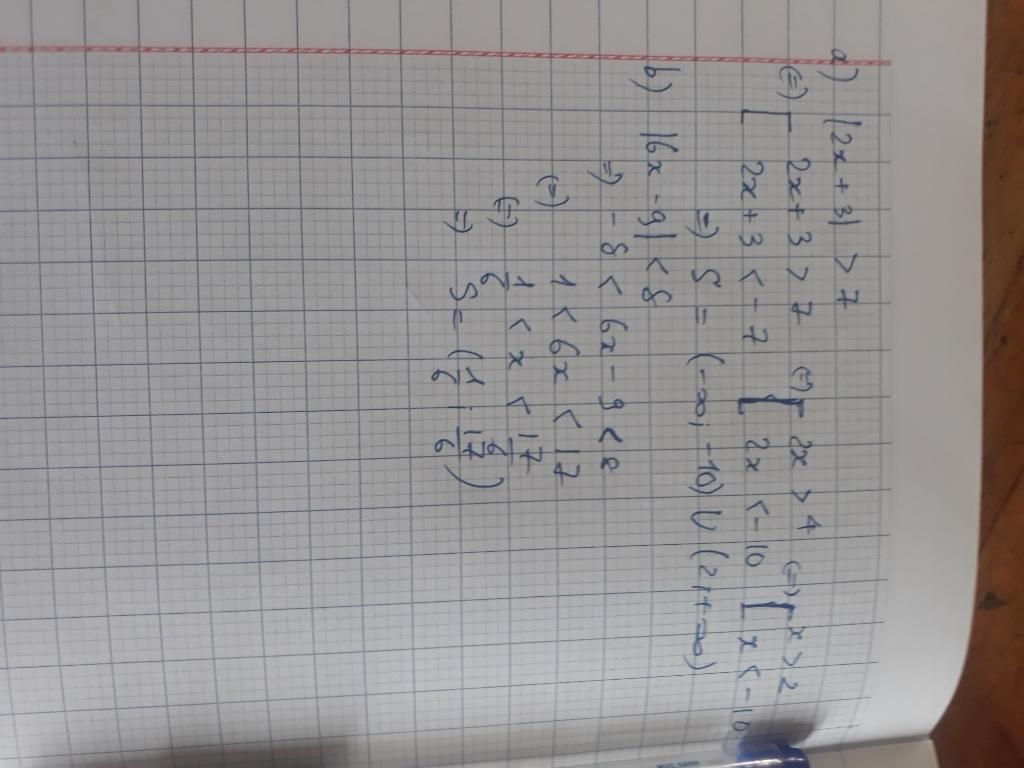 a) |2x + 3| > 7
(=) [ 2x + 3 > 7 (=) [ 2x > 4 (=) [ x > 2
2x + 3 < -7 2x < -10 x < -10
=) S = (-∞; -10) ∪ (2; +∞)
b) |6x - 9| < 8
=) -8 < 6x - 9 < 8
(=) 1 < 6x < 17
(=) 1/6 < x < 17/6
=) S = (1/6; 17/6)